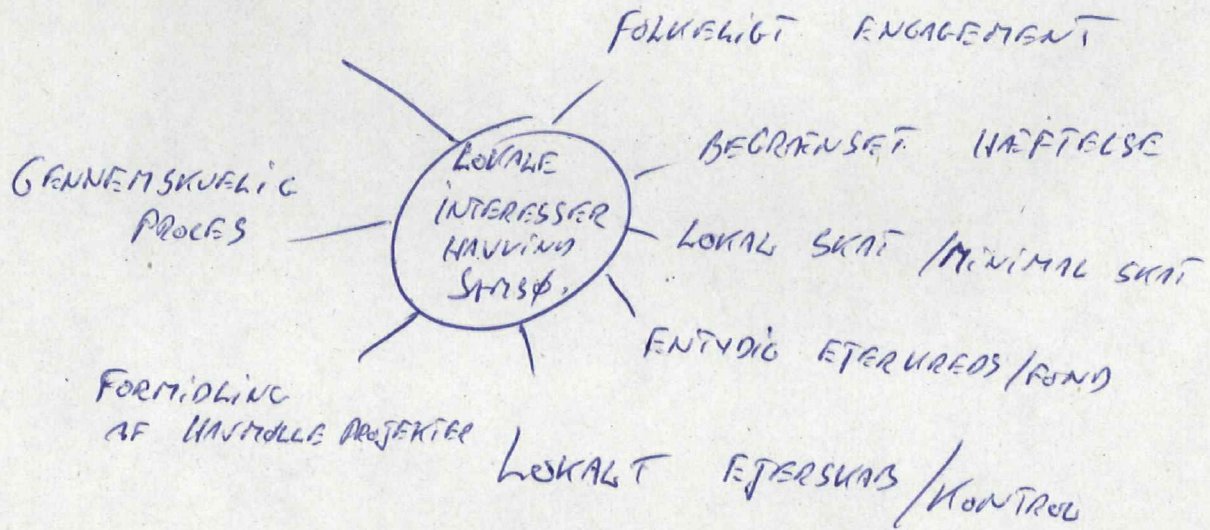 FOLKELIGT ENGAGEMENT
BEGRÆNSET HÆFTELSE
LOKAL SKAT / MINIMAL SKAT
ENTYDIG EJERKREDS / FOND
LOKALT EJERSKAB / KONTROL
FORMIDLING
AF HAVMØLLE PROJEKTER
GENNEMSKUELIG
PROCES
LOKALE
INTERESSER
HAVVIND
SAMSØ.